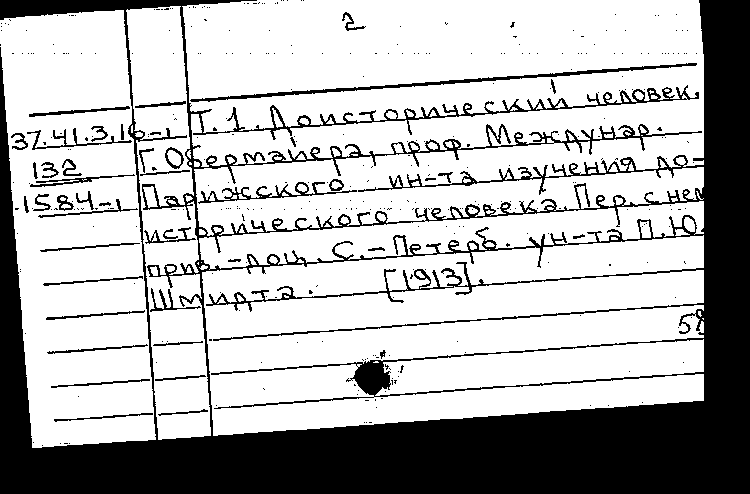 2
37.41.3.16-1 Т. 1. Доисторический человек.
132 Г. Обермайера, проф. Междунар.
1584-1 Парижского ин-та изучения до-
исторического человека. Пер. с нем
прив.-доц. С.-Петерб. ун-та П.Ю.
Шмидта. [1913].